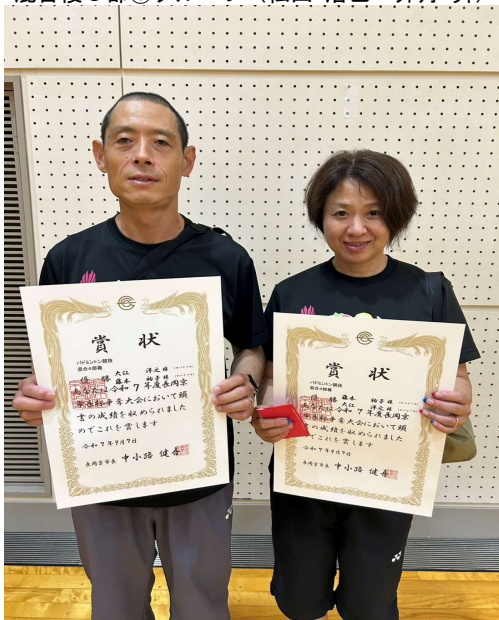 賞状
バドミントン競技
混合4部種
優勝 大江 洋之 様
藤本 柚子 様
あなたは令和7年度長岡京
市長杯争奪大会において頭
書の成績を収められました
のでこれを賞します
令和7年9月7日
長岡京市長 中小路 健吾
賞状
バドミントン競技
混合4部種
優勝 藤本 柚子 様
大江 洋之 様
あなたは令和7年度長岡京
において頭
書の成績を収められました
のでこれを賞します
令和7年9月7日
長岡京市長 中小路 健吾